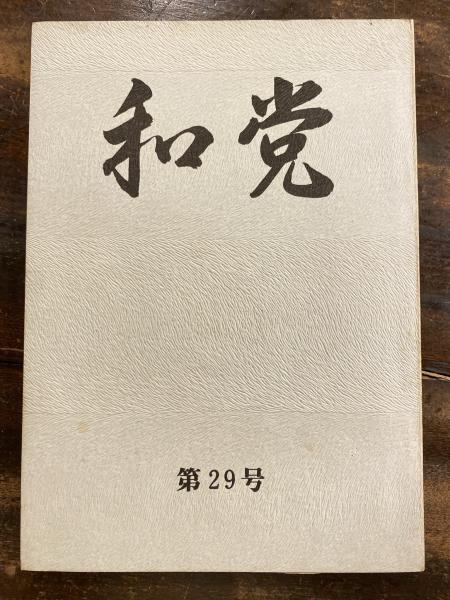 和党
第29号